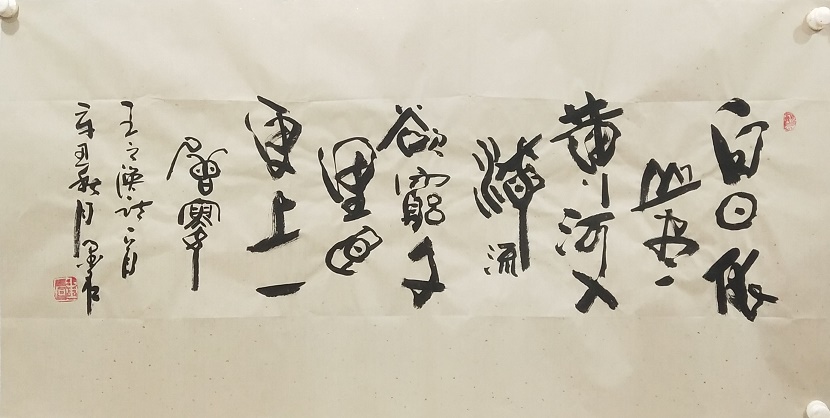 白日依
山尽
黄河入
海流
欲窮千
里目
更上一
層樓
王之渙诗一首
辛丑秋月